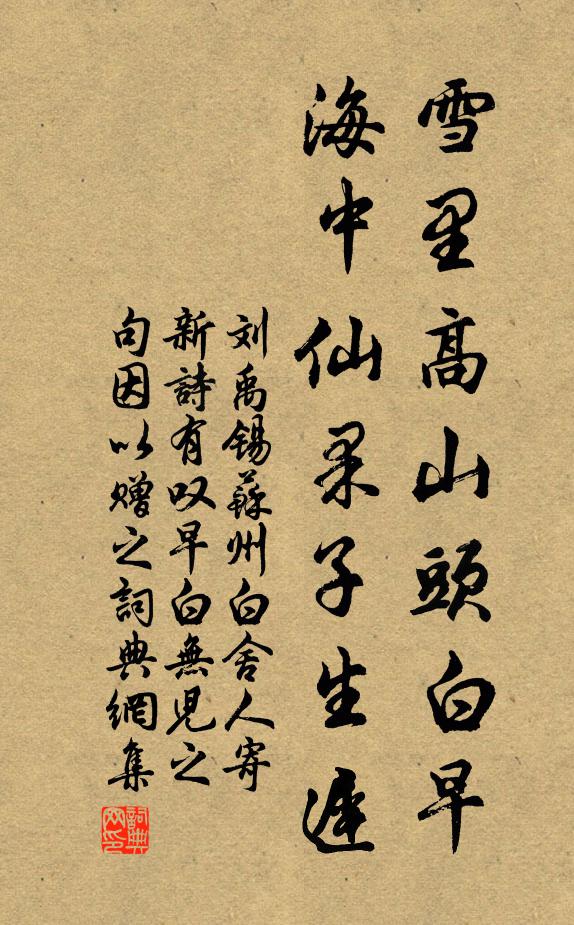 雪里高山頭白早
海中仙果子生遲
刘禹锡蘇州白舍人寄
新詩有叹早白無児之
句因以赠之詞典網集
詞典网印